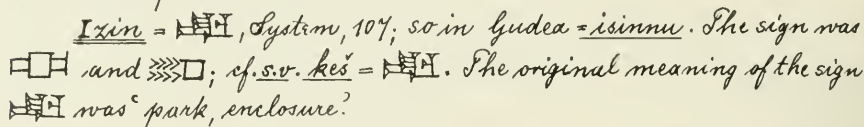 Izin = 𒂡, System, 107; so in Gudea = isinnu. The sign was
and ; cf. s.v. keš = 𒂡. The original meaning of the sign
𒂡 was park, enclosure?